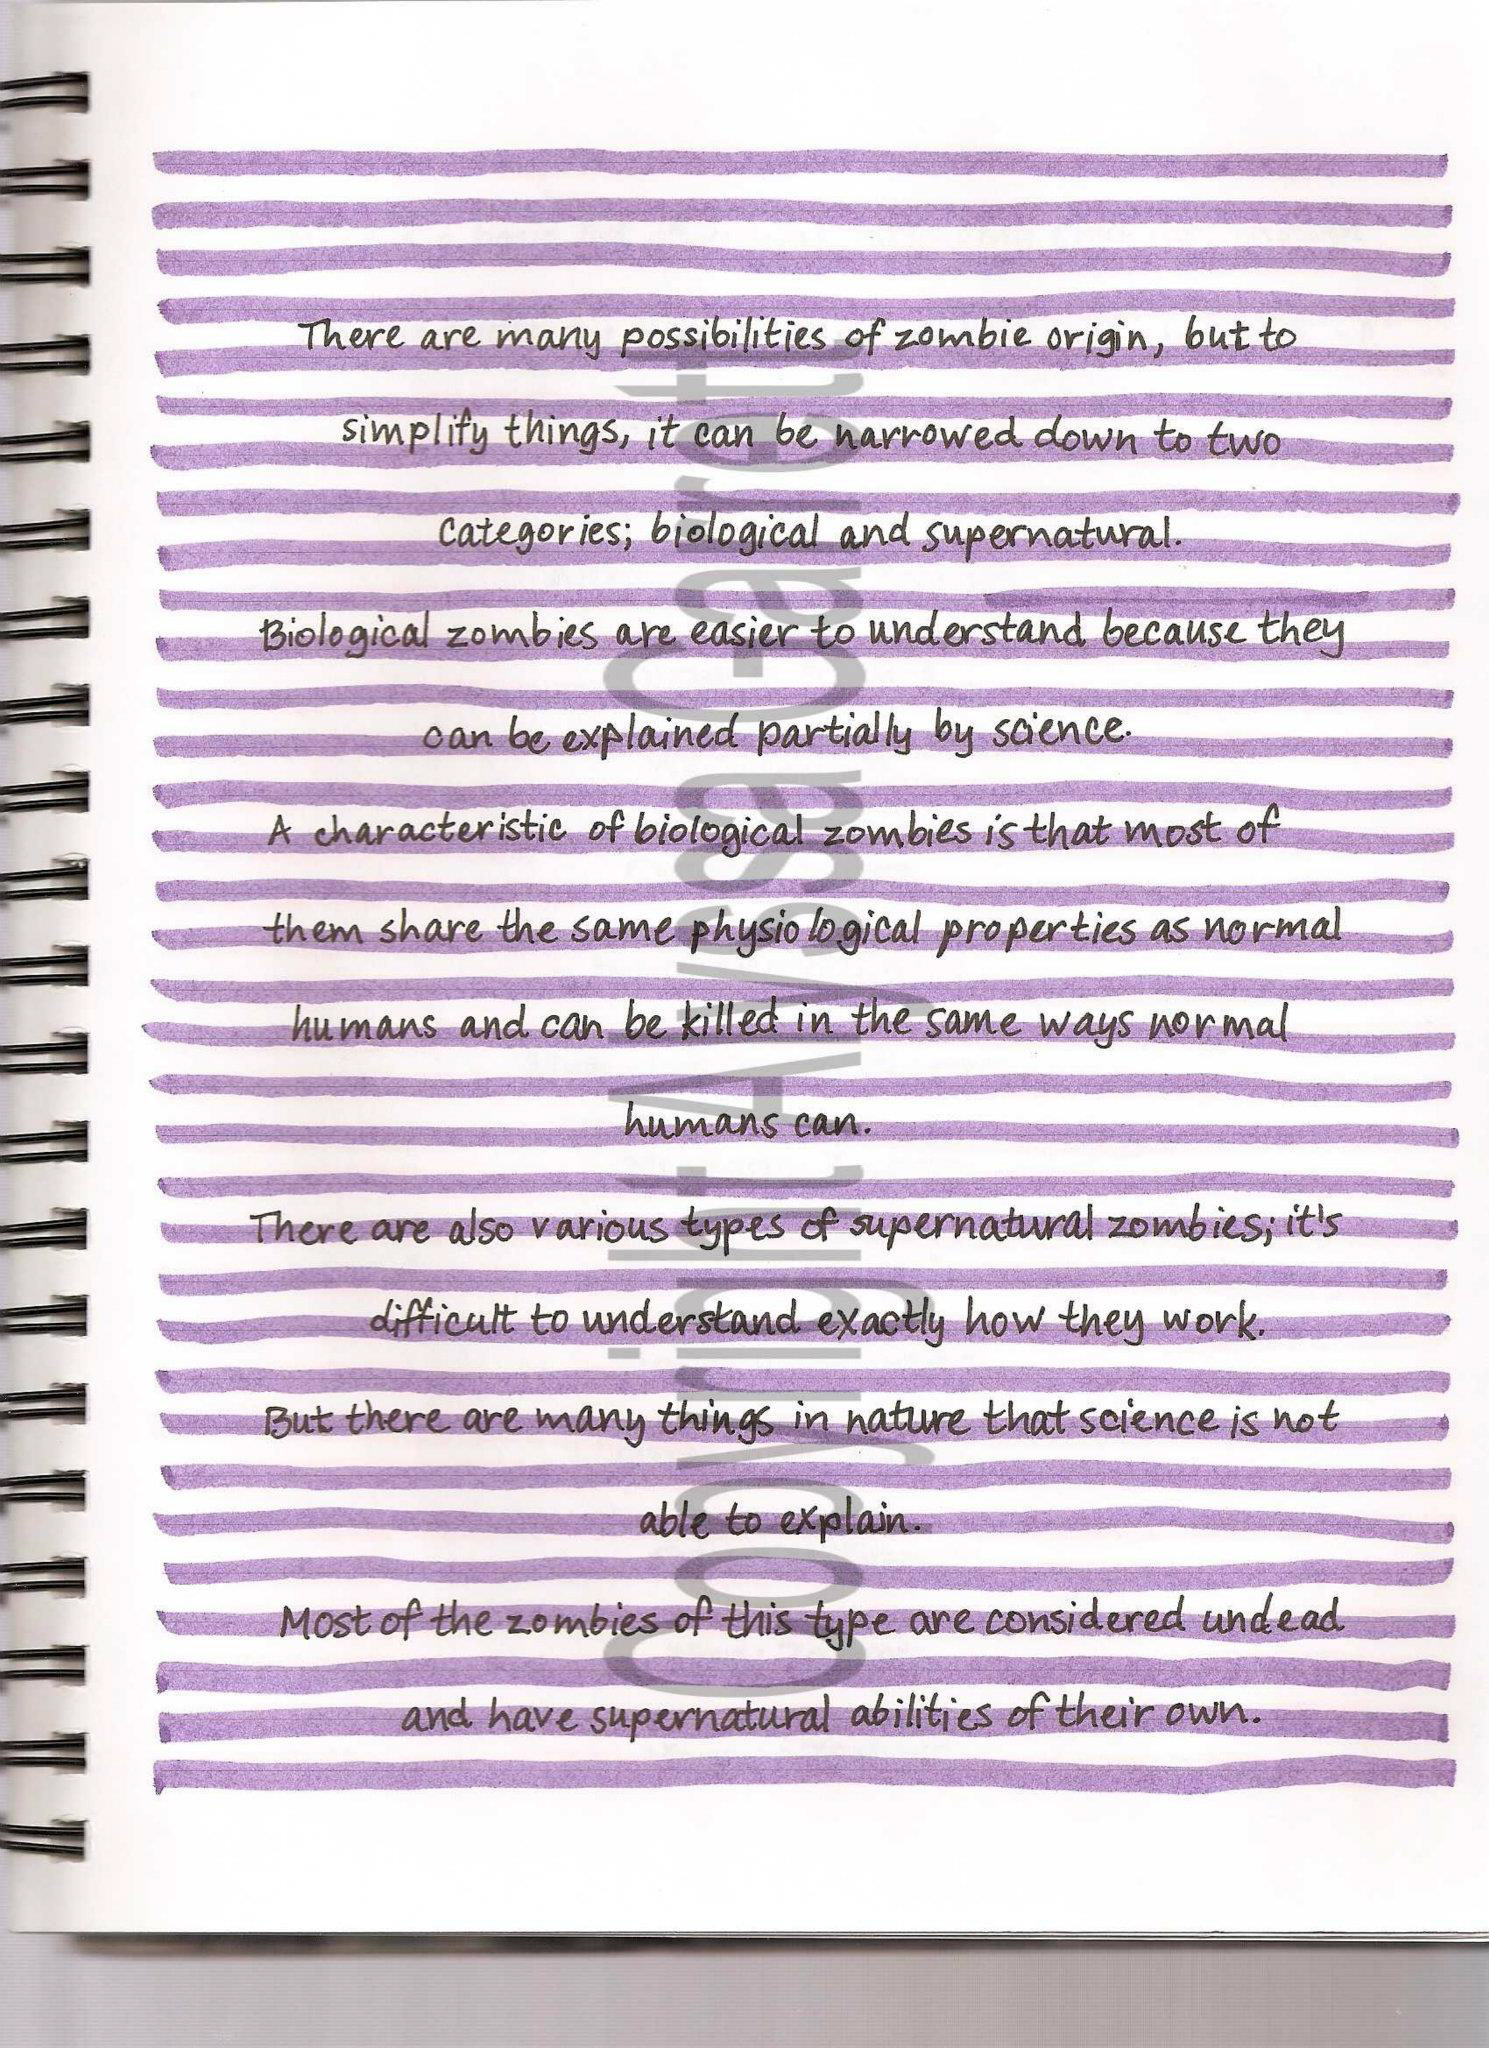 There are many possibilities of zombie origin, but to
simplify things, it can be narrowed down to two
Categories; biological and supernatural.
Biological zombies are easier to understand because they
can be explained partially by science.
A characteristic of biological zombies is that most of
them share the same physiological properties as normal
humans and can be killed in the same ways normal
humans can.
There are also various types of supernatural zombies; it's
difficult to understand exactly how they work.
But there are many things in nature that science is not
able to explain.
Most of the zombies of this type are considered undead
and have supernatural abilities of their own.
Copyright Alyssa Garret